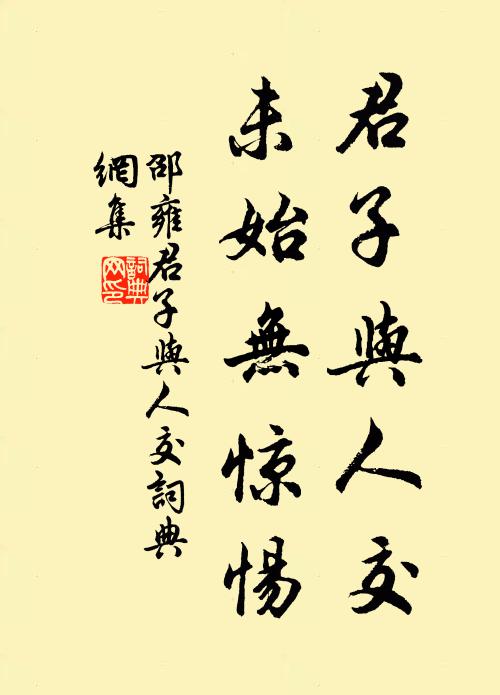 君子與人交
未始無惊惕
邵雍君子與人交詞典
網集
詞典
网印